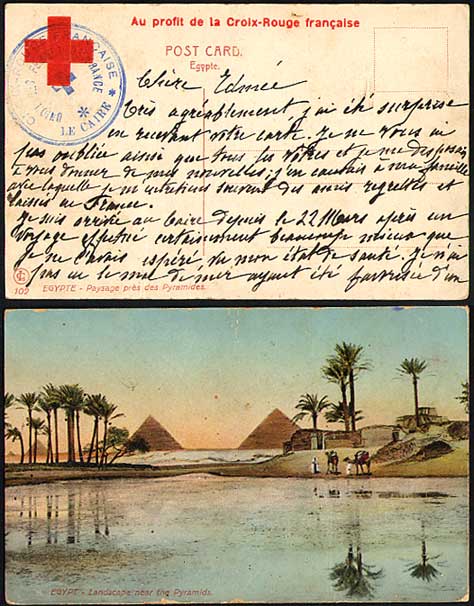 Au profit de la Croix-Rouge française
POST CARD.
Egypte.
FRANÇAISE
FRANCE
LE CAIRE
Chère Edmée
Très agréablement j'ai été surprise
en recevant votre carte. Je ne vous ai
pas oubliée ainsi que tous les vôtres et je me disposais
à vous donner de mes nouvelles; j'en causais à ma famille
avec laquelle je m'entretiens souvent des amis regrettés et
laissés en France.
Je suis arrivée au Caire depuis le 22 Mars après un
voyage effectué certainement beaucoup mieux que
je ne l'avais espéré vu mon état de santé. Je n'ai
pas eu le mal de mer ayant été favorisée d'un
102 EGYPTE - Paysage près des Pyramides.
EGYPT - Landscape near the Pyramids.